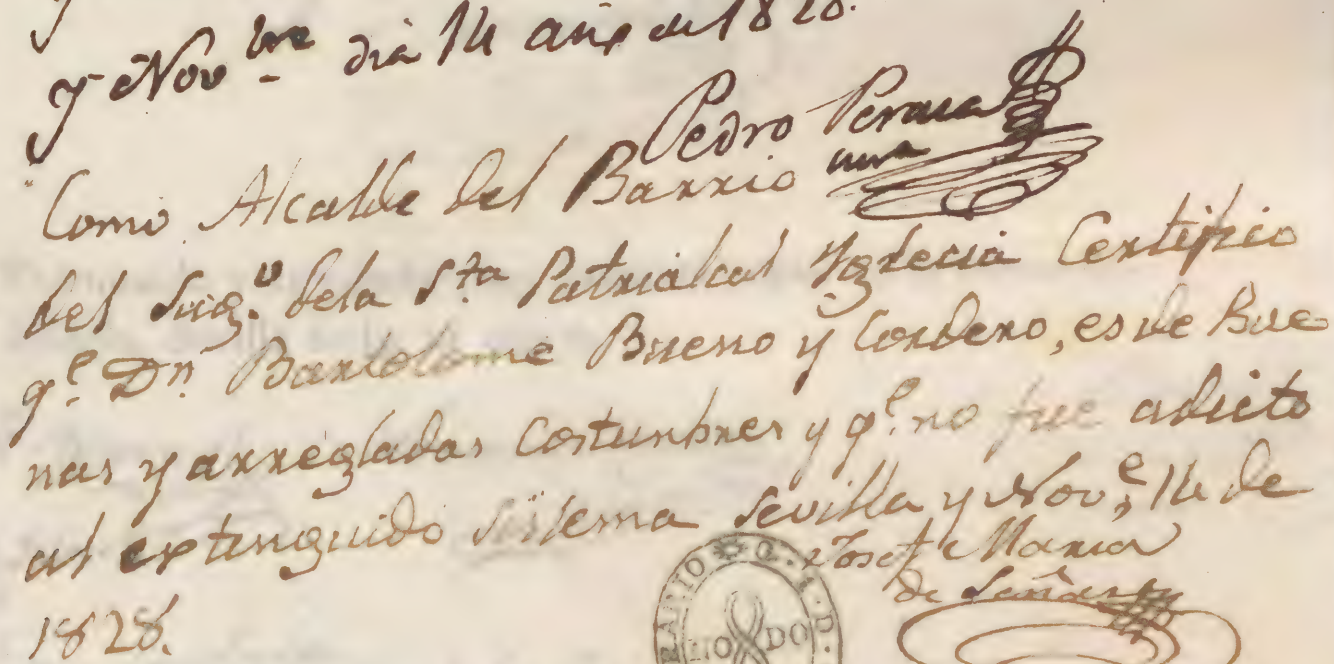 y Nov.bre dia 14 año de 1828.
Pedro
cura
Como Alcalde del Barrio
del Sag.o dela S.ta Patriarcal Yglecia Certifico
q.e Dn. Bartolome Bueno y Cordero, es de Bue
nas y arregladas Costumbres y q.e no fue adicto
al extinguido sistema Sevilla y Nov.e 14 de
1828.
Josef Maria
de
NO DO